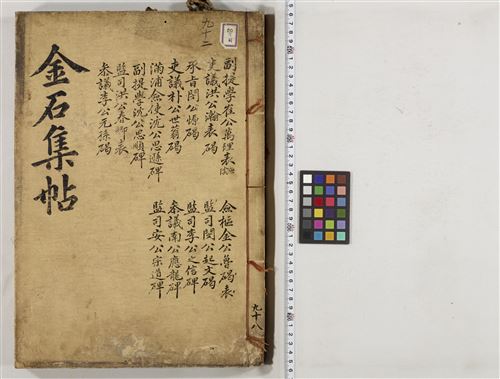 金石集帖
九十二
副提學崔公萬理表
吏議洪公瀚表碣
承旨閔公㥠碣
吏議朴公世蓊碣
滿浦僉使沈公思遜碑
副提學沈公思順碑
監司洪公春卿表
參議李公元孫碣
僉樞金公魯碣表
監司閔公起文碣
監司李公之信碑
參議南公應龍碑
監司安公宗道碑
九十八